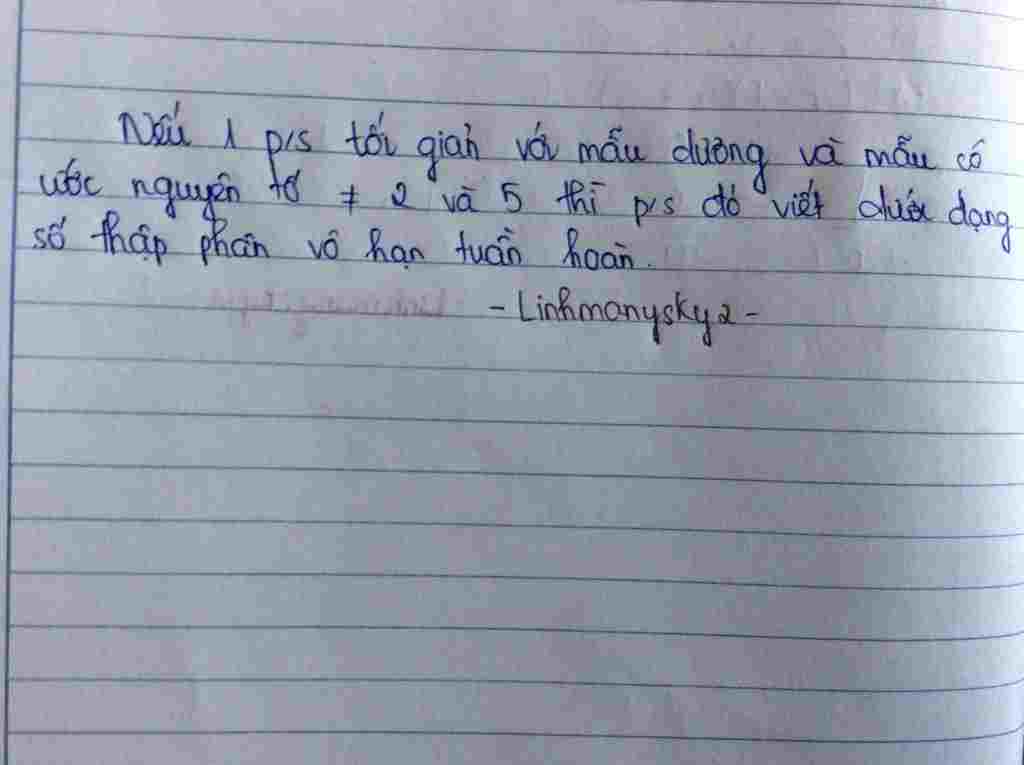 Nếu 1 p/s tối giản với mẫu dương và mẫu có
ước nguyên tố ≠ 2 và 5 thì p/s đó viết dưới dạng
số thập phân vô hạn tuần hoàn.
- Linhmonysky2 -